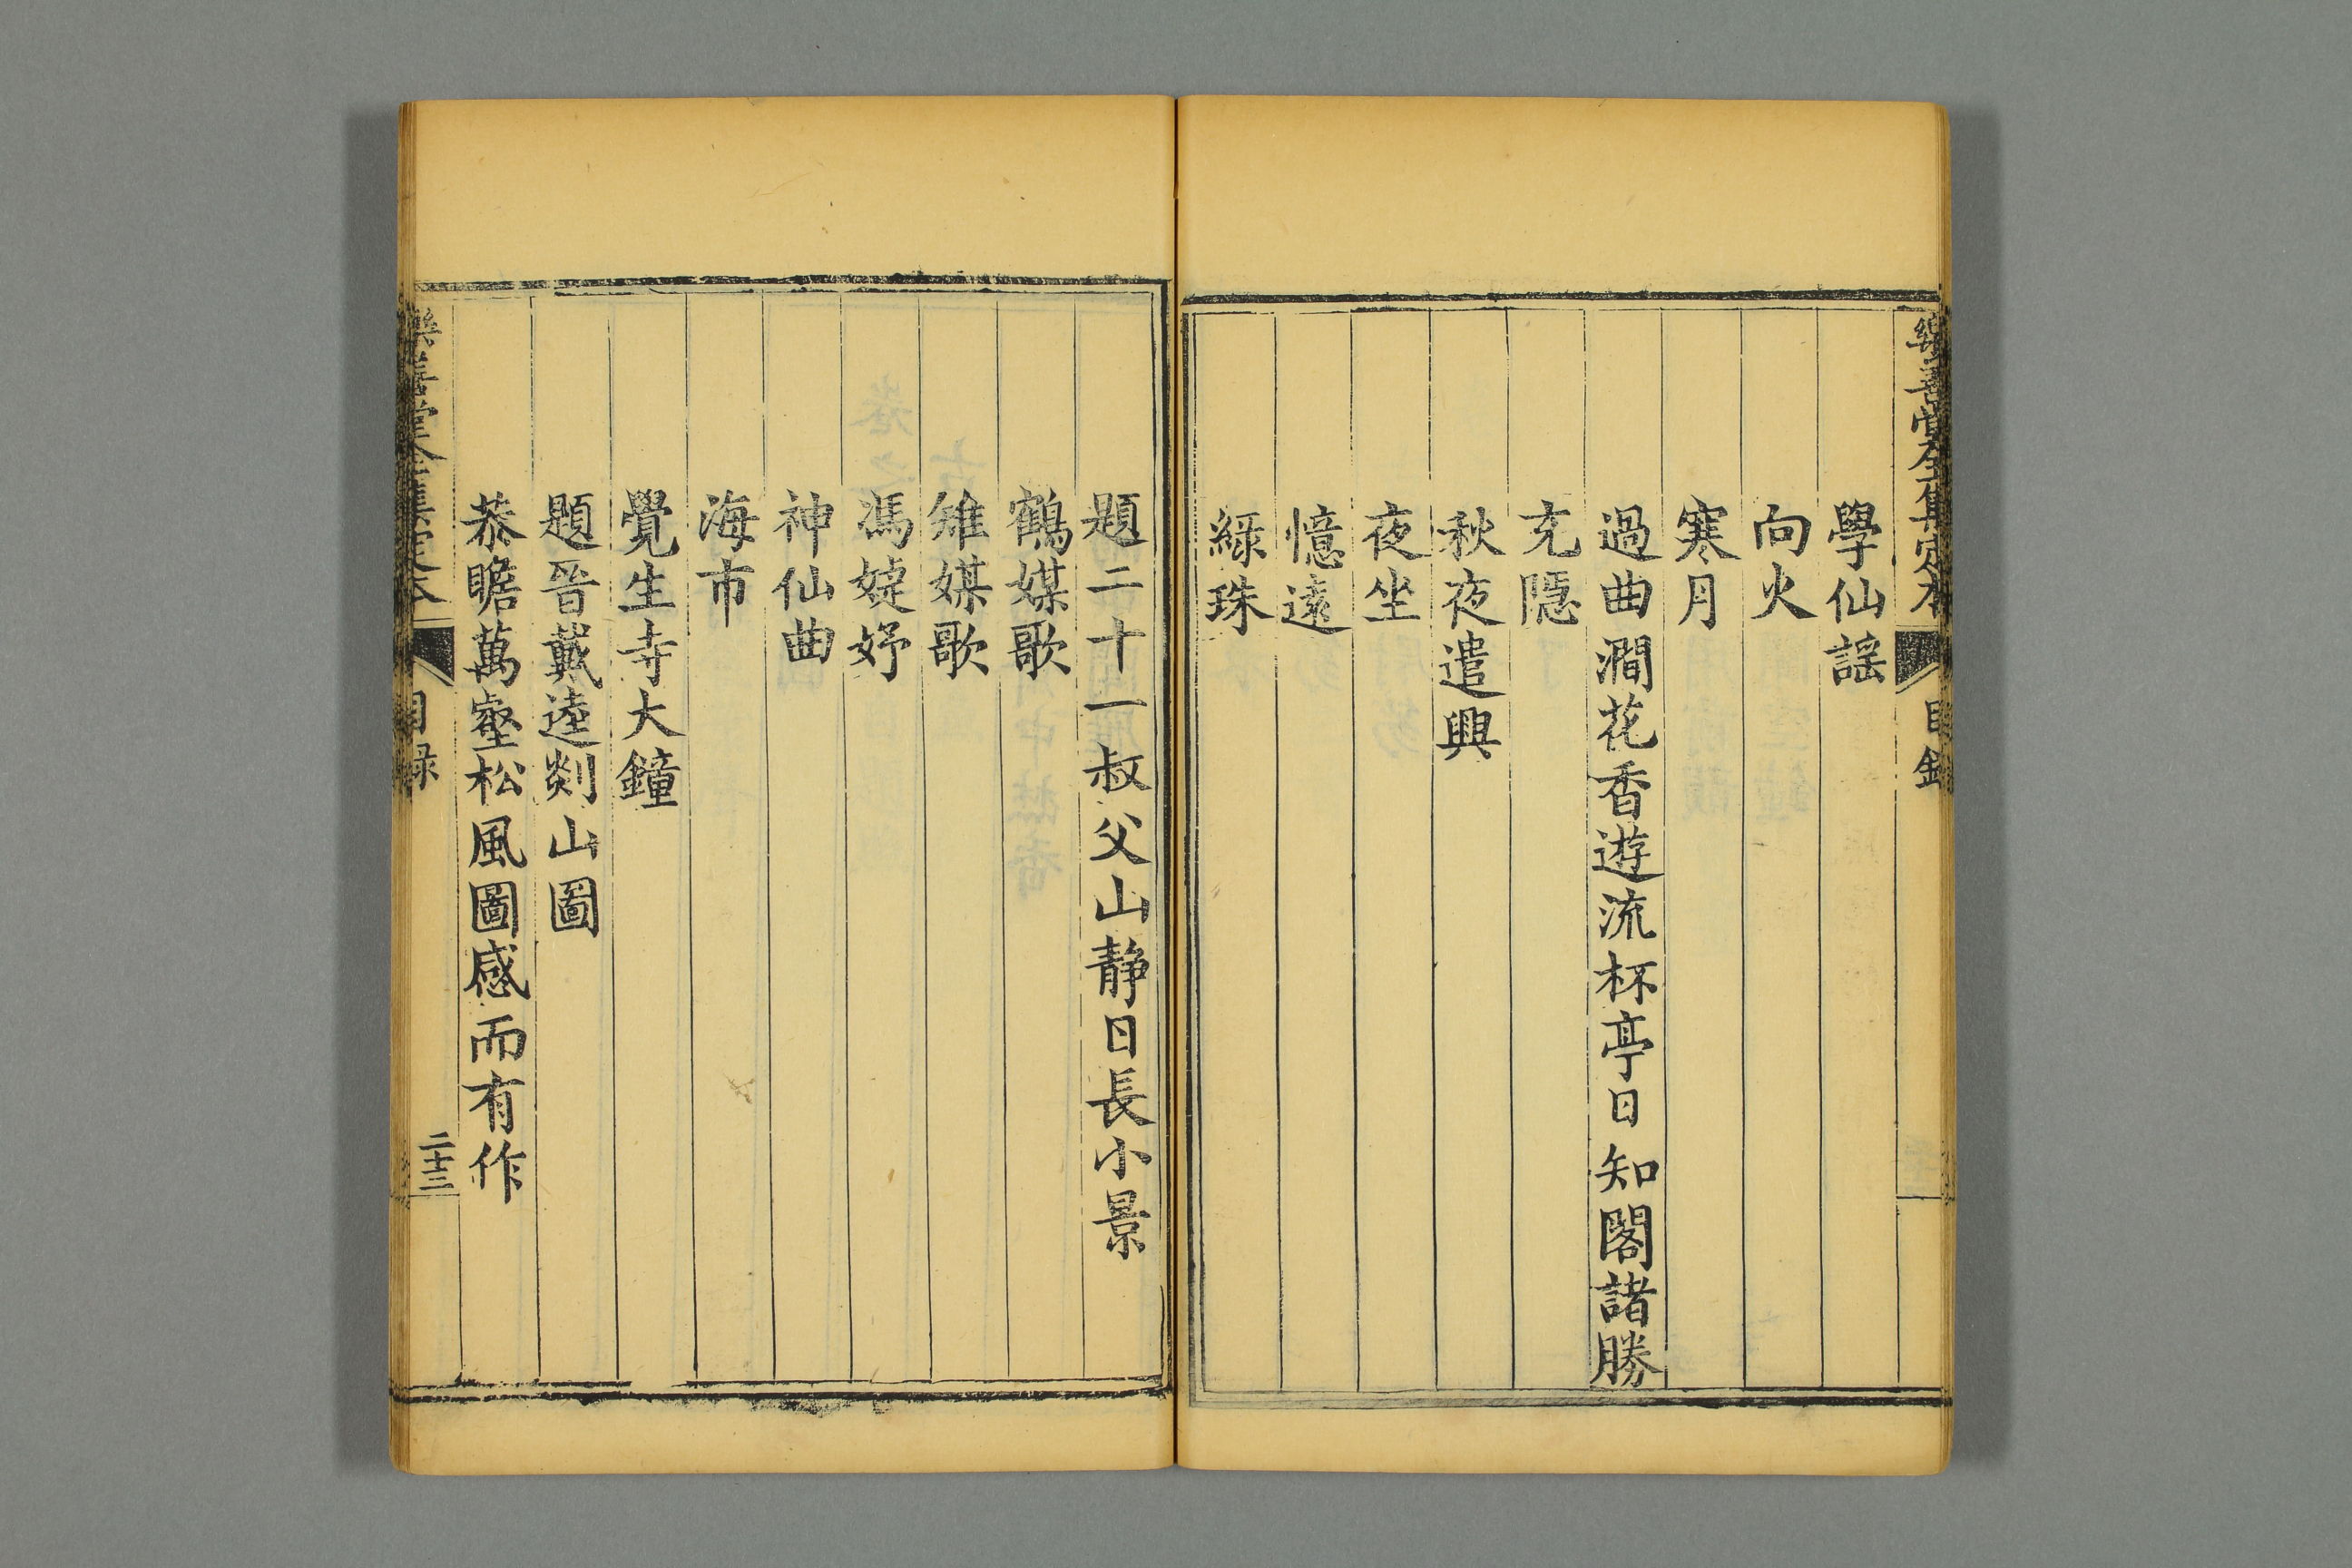 樂善堂全集定本 目錄
學仙謡
向火
寒月
過曲澗花香遊流杯亭日知閣諸勝
充隱
秋夜遣興
夜坐
憶遠
綠珠
題二十一叔父山靜日長小景
鶴媒歌
雉媒歌
馮婕妤
神仙曲
海市
覺生寺大鐘
題晉戴逵剡山圖
恭瞻萬壑松風圖感而有作
樂善堂全集定本 目錄 二十三